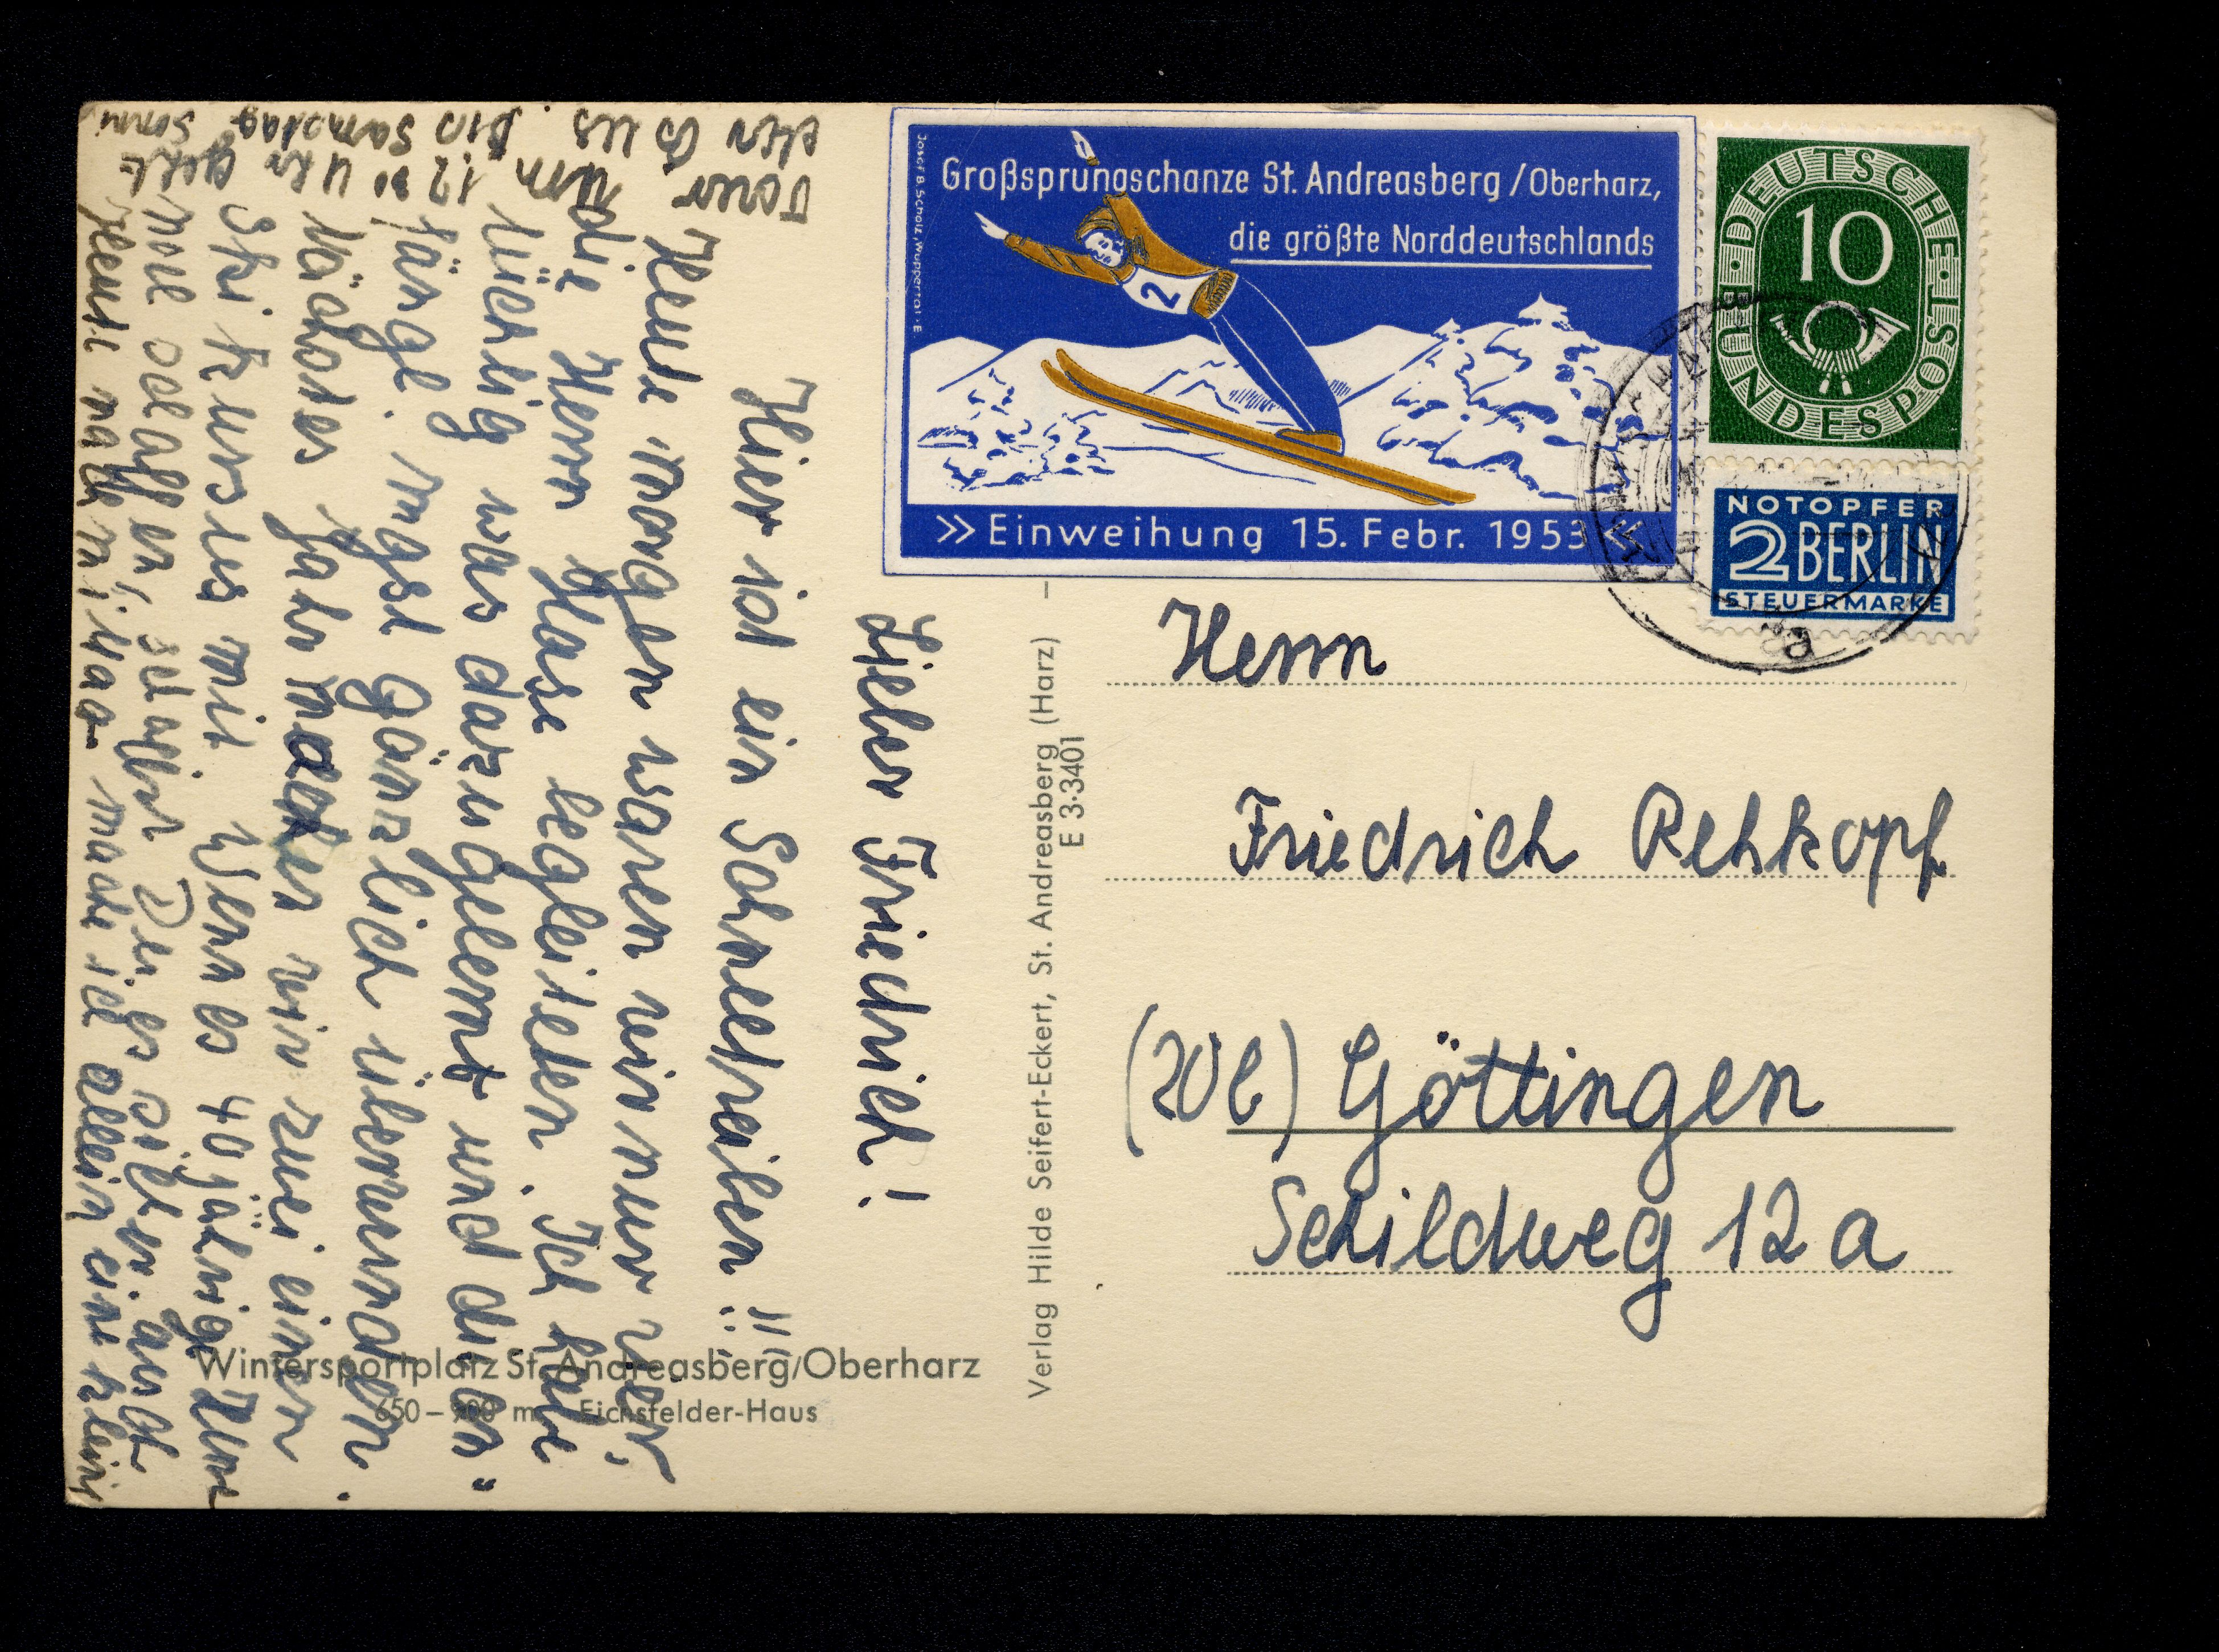 Großsprungschanze St. Andreasberg / Oberharz,
die größte Norddeutschlands
2
» Einweihung 15. Febr. 1953 «
Josef B. Scholz, Wuppertal-E
DEUTSCHE BUNDESPOST
10
NOTOPFER
2 BERLIN
STEUERMARKE
a
Herrn
Friedrich Rehkopf
(20b) Göttingen
Schildweg 12 a
Verlag Hilde Seifert-Eckert, St. Andreasberg (Harz)
E 3·3401
Wintersportplatz St. Andreasberg/Oberharz
650 – 900 m Eichsfelder-Haus
Lieber Friedrich!
Hier ist ein Schneetreiben!!
Heute morgen waren wir nur vier,
die Herrn Hase begleiteten. Ich habe
tüchtig was dazugelernt und die An-
fänge. Angst gänzlich überwunden.
Nächstes Jahr machen wir zwei einen
Skikursus mit. Wenn es 40 jährige
noch schaffen, schaffst Du es sicher auch
Heute nachmittag mache ich allein eine kleine
Tour um 12.30 Uhr geht
der Bus. Bis Samstag